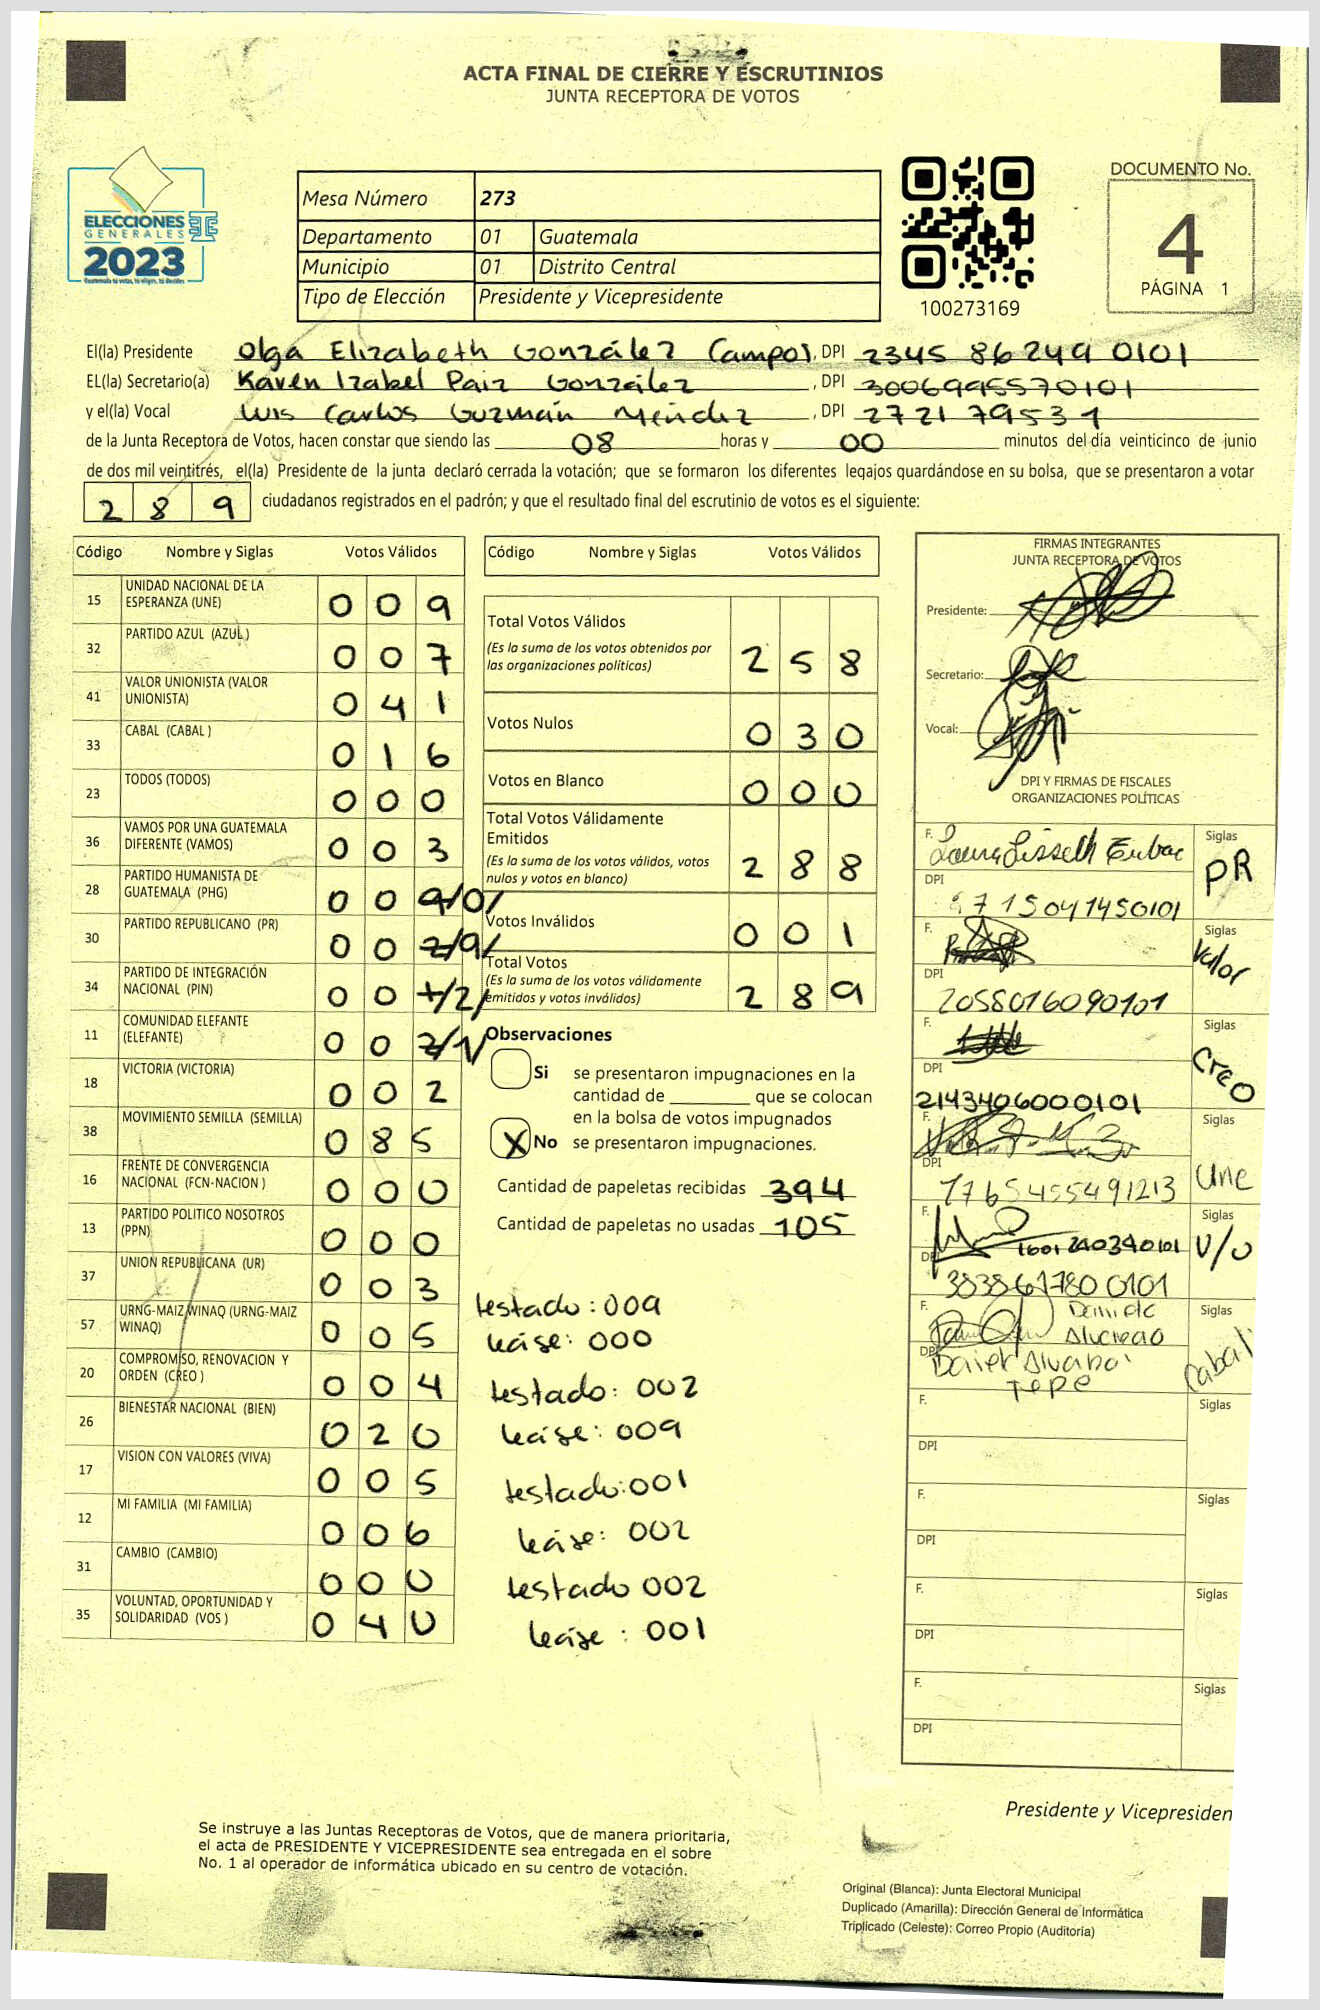 ACTA FINAL DE CIERRE Y ESCRUTINIOS
JUNTA RECEPTORA DE VOTOS
ELECCIONES
GENERALES
2023
Guatemala tú votas, tú eliges, tú decides
Mesa Número 273
Departamento 01 Guatemala
Municipio 01 Distrito Central
Tipo de Elección Presidente y Vicepresidente
100273169
DOCUMENTO No.
4
PÁGINA 1
El(la) Presidente Olga Elizabeth González Campos, DPI 2345 86249 0101
EL(la) Secretario(a) Karen Izabel Paiz González, DPI 3006995570101
y el(la) Vocal Luis Carlos Guzmán Méndez, DPI 2721 79531
de la Junta Receptora de Votos, hacen constar que siendo las 08 horas y 00 minutos del día veinticinco de junio
de dos mil veintitrés, el(la) Presidente de la junta declaró cerrada la votación; que se formaron los diferentes legajos guardándose en su bolsa, que se presentaron a votar
2 8 9 ciudadanos registrados en el padrón; y que el resultado final del escrutinio de votos es el siguiente:
Código Nombre y Siglas Votos Válidos
15 UNIDAD NACIONAL DE LA ESPERANZA (UNE) 0 0 9
32 PARTIDO AZUL (AZUL) 0 0 7
41 VALOR UNIONISTA (VALOR UNIONISTA) 0 4 1
33 CABAL (CABAL) 0 1 6
23 TODOS (TODOS) 0 0 0
36 VAMOS POR UNA GUATEMALA DIFERENTE (VAMOS) 0 0 3
28 PARTIDO HUMANISTA DE GUATEMALA (PHG) 0 0 9/0/
30 PARTIDO REPUBLICANO (PR) 0 0 2/9/
34 PARTIDO DE INTEGRACIÓN NACIONAL (PIN) 0 0 1/2/
11 COMUNIDAD ELEFANTE (ELEFANTE) 0 0 2/1/
18 VICTORIA (VICTORIA) 0 0 2
38 MOVIMIENTO SEMILLA (SEMILLA) 0 8 5
16 FRENTE DE CONVERGENCIA NACIONAL (FCN-NACION) 0 0 0
13 PARTIDO POLITICO NOSOTROS (PPN) 0 0 0
37 UNION REPUBLICANA (UR) 0 0 3
57 URNG-MAIZ WINAQ (URNG-MAIZ WINAQ) 0 0 5
20 COMPROMISO, RENOVACION Y ORDEN (CREO) 0 0 4
26 BIENESTAR NACIONAL (BIEN) 0 2 0
17 VISION CON VALORES (VIVA) 0 0 5
12 MI FAMILIA (MI FAMILIA) 0 0 6
31 CAMBIO (CAMBIO) 0 0 0
35 VOLUNTAD, OPORTUNIDAD Y SOLIDARIDAD (VOS) 0 4 0
Código Nombre y Siglas Votos Válidos
Total Votos Válidos 2 5 8
(Es la suma de los votos obtenidos por
las organizaciones políticas)
Votos Nulos 0 3 0
Votos en Blanco 0 0 0
Total Votos Válidamente
Emitidos 2 8 8
(Es la suma de los votos válidos, votos
nulos y votos en blanco)
Votos Inválidos 0 0 1
Total Votos
(Es la suma de los votos válidamente
emitidos y votos inválidos) 2 8 9
Observaciones
Si se presentaron impugnaciones en la
cantidad de ________ que se colocan
en la bolsa de votos impugnados
X No se presentaron impugnaciones.
Cantidad de papeletas recibidas 394
Cantidad de papeletas no usadas 105
testado: 009
léase: 000
testado: 002
léase: 009
testado: 001
léase: 002
testado 002
léase: 001
FIRMAS INTEGRANTES
JUNTA RECEPTORA DE VOTOS
Presidente:
Secretario:
Vocal:
DPI Y FIRMAS DE FISCALES
ORGANIZACIONES POLÍTICAS
F. Siglas PR
DPI 715041450101
F. Siglas Valor
DPI 2058016090101
F. Siglas Creo
DPI 2143406000101
F. Siglas Une
DPI 1765455491213
F. Siglas V/U
DPI 1601240340101
3838617800101
F. Siglas Cabal
DPI
F. Siglas
DPI
F. Siglas
DPI
F. Siglas
DPI
F. Siglas
DPI
Presidente y Vicepresiden
Se instruye a las Juntas Receptoras de Votos, que de manera prioritaria,
el acta de PRESIDENTE Y VICEPRESIDENTE sea entregada en el sobre
No. 1 al operador de informática ubicado en su centro de votación.
Original (Blanca): Junta Electoral Municipal
Duplicado (Amarilla): Dirección General de Informática
Triplicado (Celeste): Correo Propio (Auditoría)